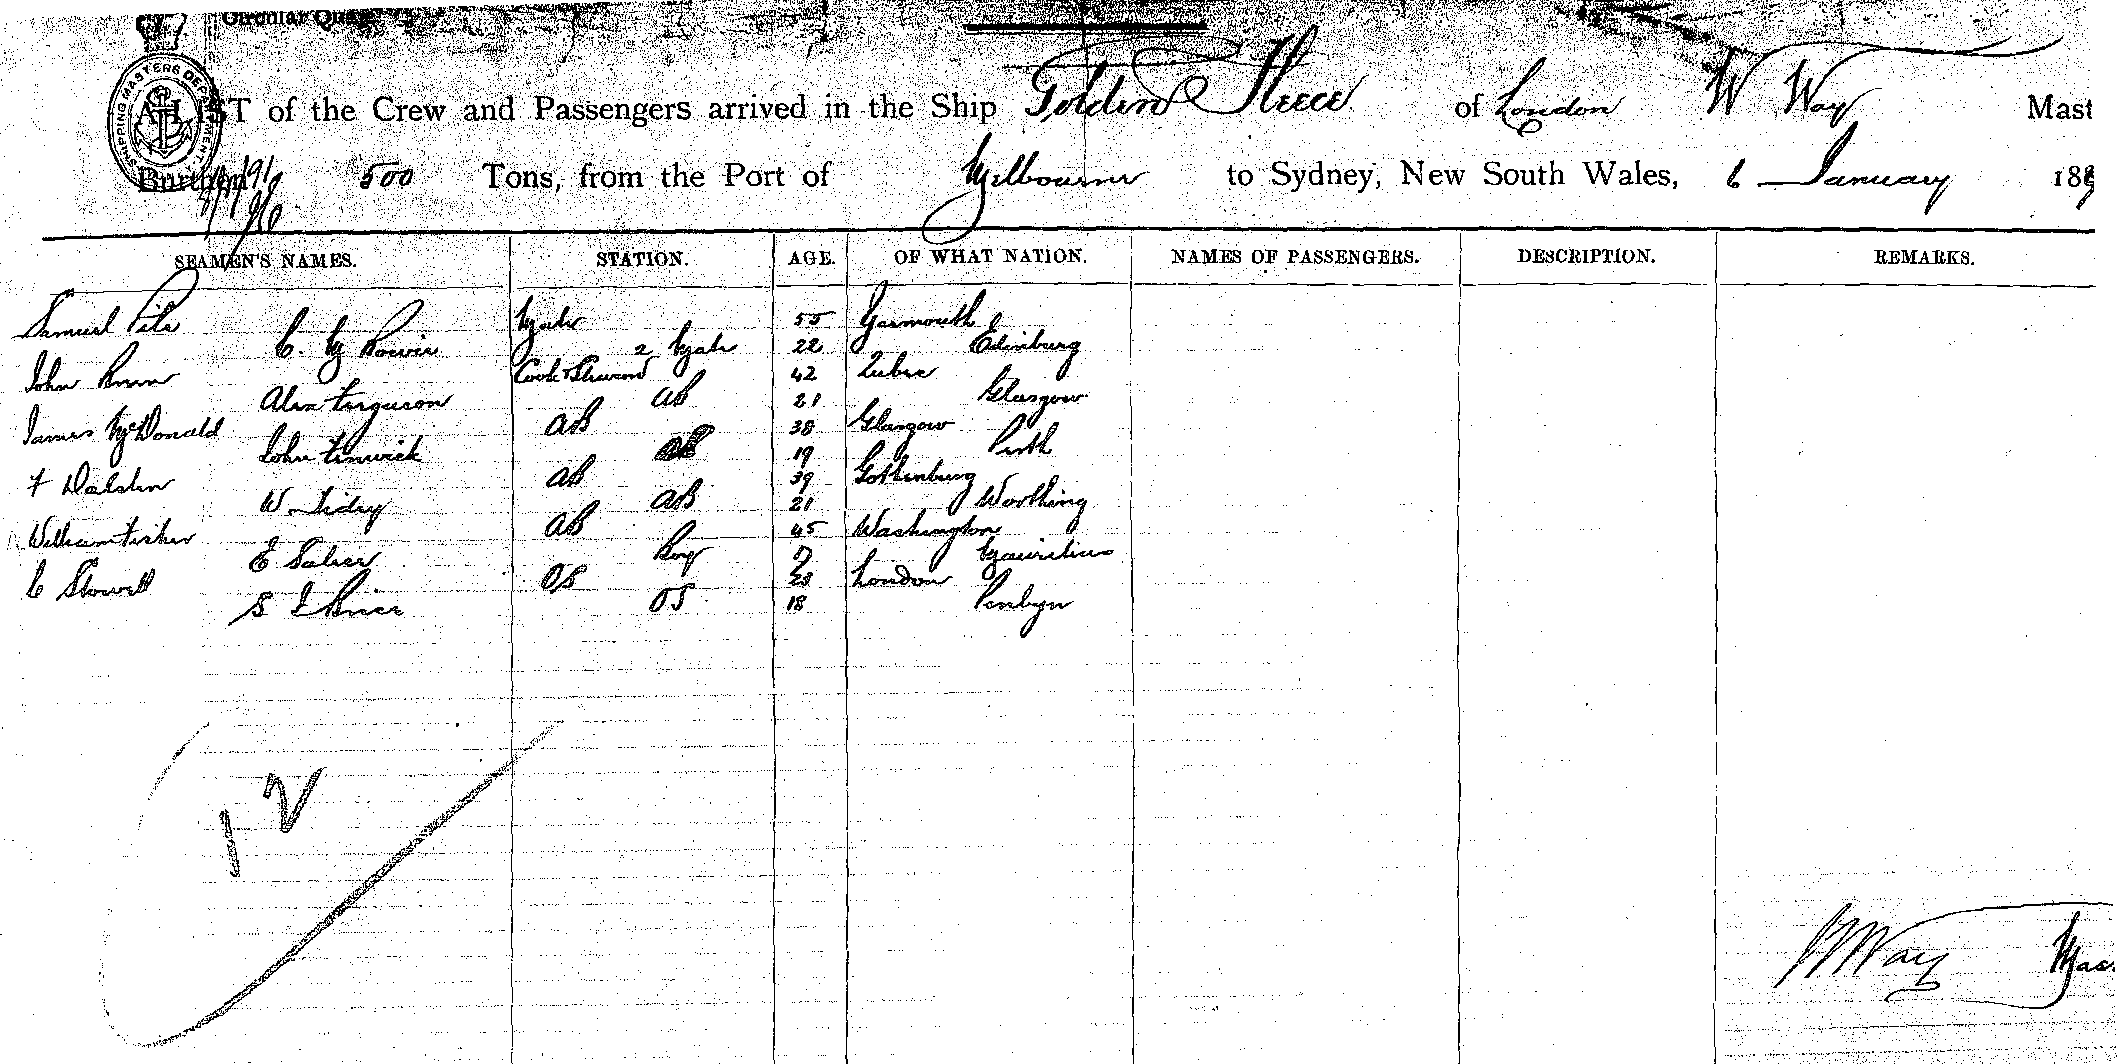 Circular Quay
SHIPPING MASTERS DEPARTMENT
A LIST of the Crew and Passengers arrived in the Ship Golden Fleece of London W Way Mast
Burthen 500 Tons, from the Port of Melbourne to Sydney, New South Wales, 6 January 189
SEAMEN'S NAMES. STATION. AGE. OF WHAT NATION. NAMES OF PASSENGERS. DESCRIPTION. REMARKS.
Samuel Pile Mate 55 Yarmouth
C. M Bowie 2 Mate 22 Edinburg
John Cook & Steward 42 Lubec
Alex Ferguson AB 21 Glasgow
James McDonald AB 38 Glasgow
John Fenwick AB 19 Perth
F Dalsten AB 39 Gothenburg
W Tidey AB 21 Worthing
William Fisher AB 45 Washington
E Boy Mauritius
C Stowell OS 23 London
S J Price OS 18 Penbyn
12
W Way Mas